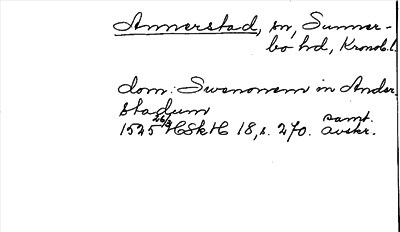 Annerstad, sn, Sunner-
bo hd, Kronob.l.
dom. Swenonem in Ander
stadum
1525 26/3 HSkH 18, s. 270. samt.
avskr.